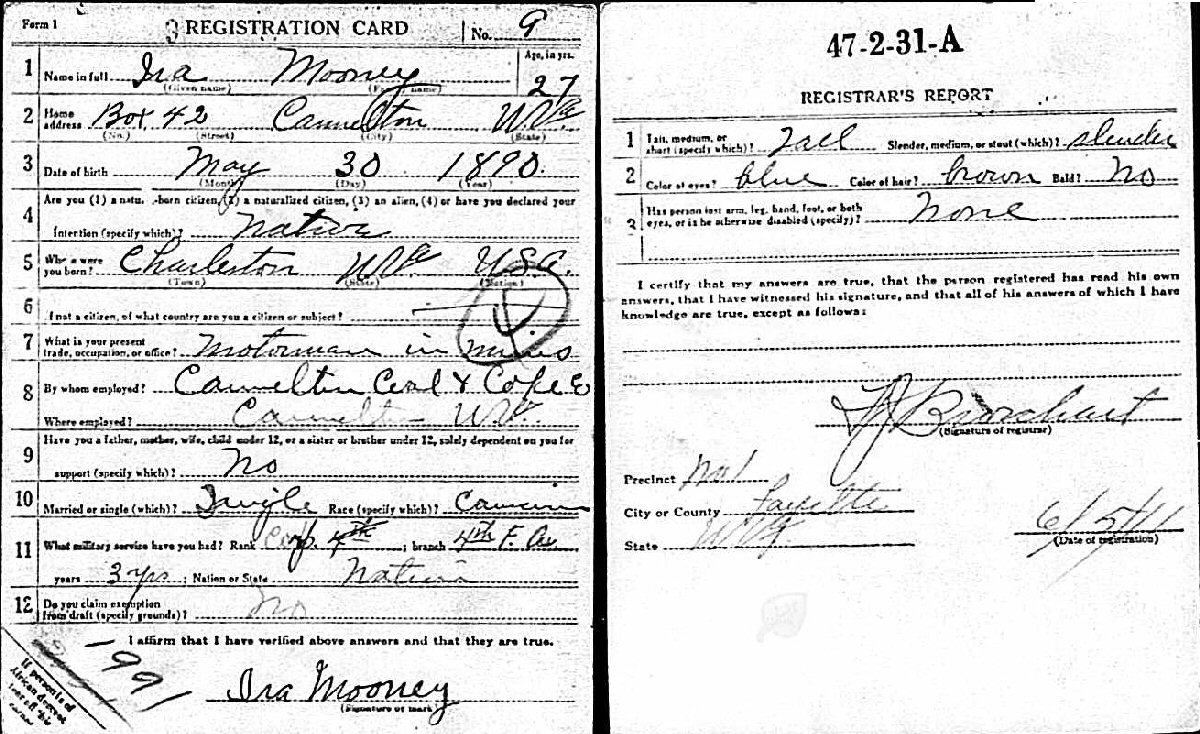 Form 1
REGISTRATION CARD No. 9
1 Name in full Ira Mooney Age, in yrs. 27
(Given name) (Family name)
2 Home address Box 42 Cannelton W Va
(No.) (Street) (City) (State)
3 Date of birth May 30 1890
(Month) (Day) (Year)
4 Are you (1) a natural-born citizen, (2) a naturalized citizen, (3) an alien, (4) or have you declared your
intention (specify which)? Native
5 Where were you born? Charleston W Va USA.
(Town) (State) (Nation)
6 If not a citizen, of what country are you a citizen or subject?
7 What is your present trade, occupation, or office? Motorman in mines
8 By whom employed? Cannelton Coal & Coke
Where employed? Cannelton W Va.
9 Have you a father, mother, wife, child under 12, or a sister or brother under 12, solely dependent on you for
support (specify which)? No
10 Married or single (which)? Single Race (specify which)?
11 What military service have you had? Rank Corp. ; branch 4th F.
years 3 yrs ; Nation or State
12 Do you claim exemption from draft (specify grounds)? No
I affirm that I have verified above answers and that they are true.
1991
Ira Mooney
(Signature or mark)
If person is of African descent tear off this corner
47-2-31-A
REGISTRAR'S REPORT
1 Tall, medium, or short (specify which)? Tall Slender, medium, or stout (which)? slender
2 Color of eyes? blue Color of hair? brown Bald? No
3 Has person lost arm, leg, hand, foot, or both eyes, or is he otherwise disabled (specify)? None
I certify that my answers are true, that the person registered has read his own
answers, that I have witnessed his signature, and that all of his answers of which I have
knowledge are true, except as follows:
(Signature of registrar)
Precinct No 1
City or County Fayette
State W Va. 6/5/17
(Date of registration)